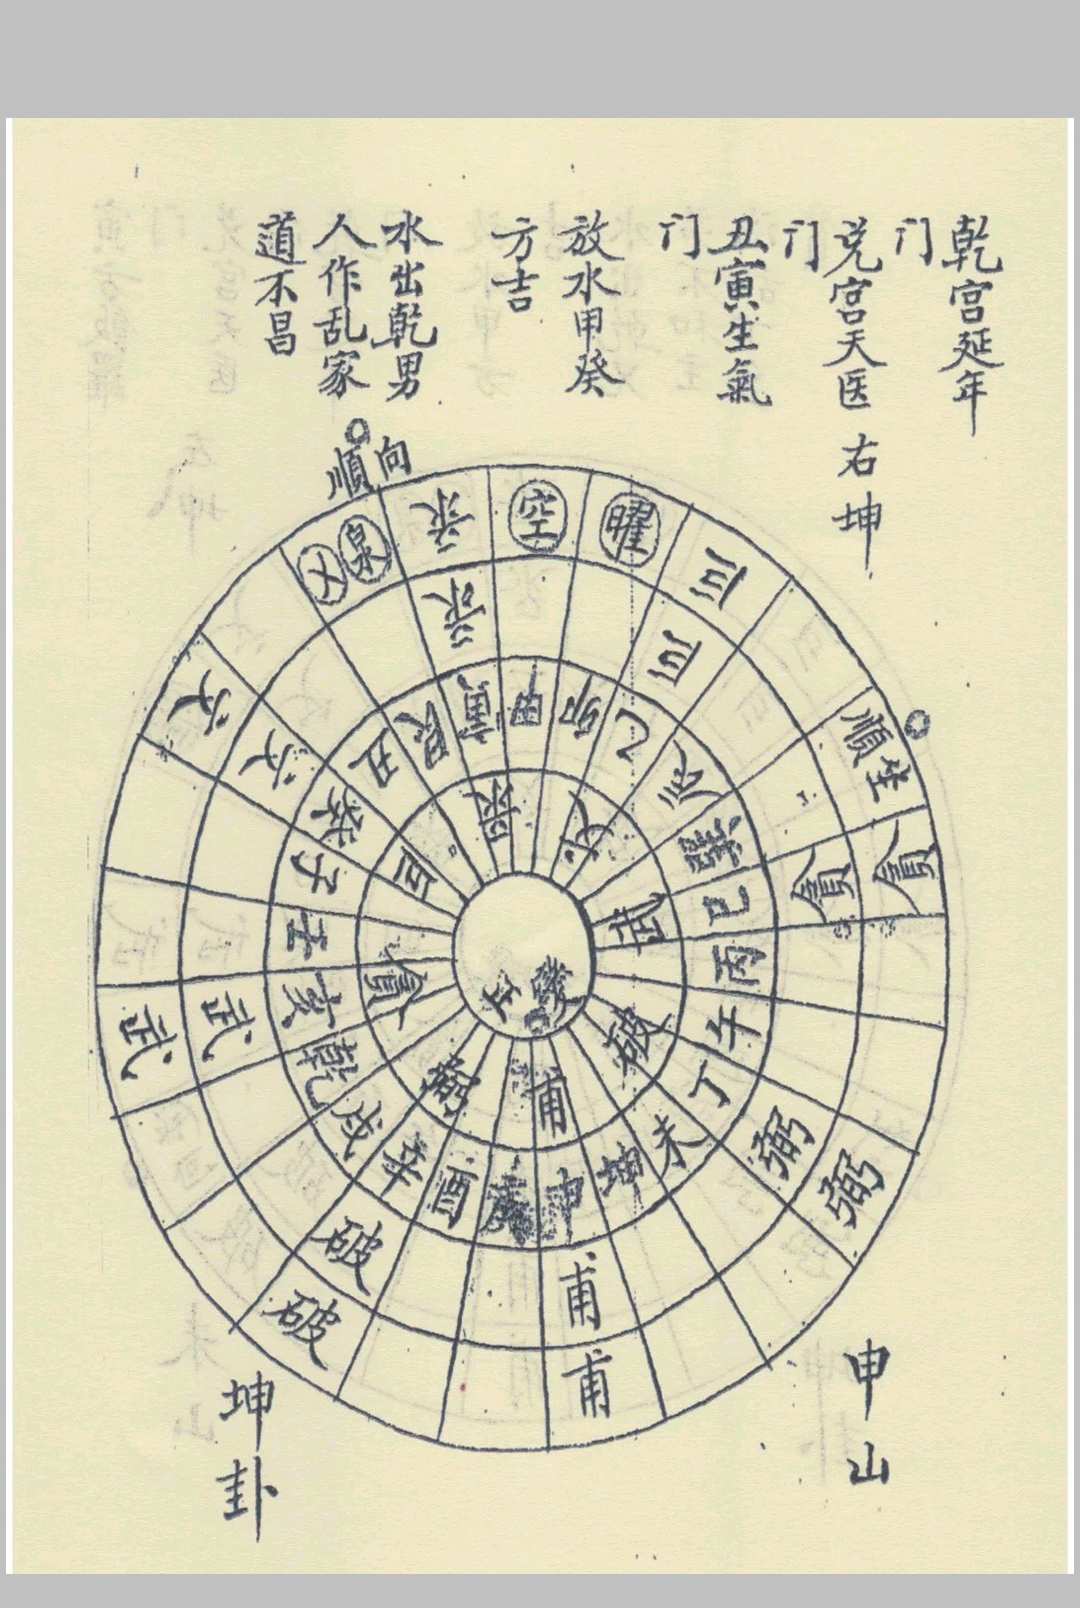 乾宫延年
门
兑宫天医 右坤
门
丑寅生氣
门
放水甲癸
方吉
水出乾男
人作乱家
道不昌
向
順
泉
乂
录
空
曜
巨
順生
貪
弼
甫
破
武
文
录
巨
貪
弼
甫
破
武
文
艮
寅
甲
卯
乙
辰
巽
巳
丙
午
丁
未
坤
申
庚
酉
辛
戌
乾
亥
壬
子
癸
丑
录
文
武
破
甫
弼
貪
巨
申山
坤卦